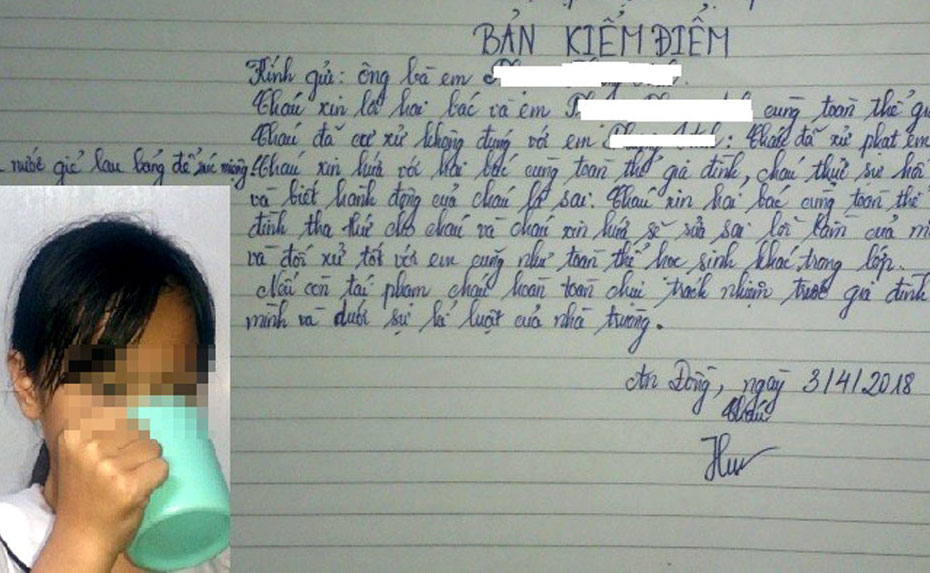 BẢN KIỂM ĐIỂM
Kính gửi: ông bà em
Cháu xin lỗi hai bác và em cùng toàn thể gia
Cháu đã cư xử không đúng với em : Cháu đã xử phạt em
nước giẻ lau bảng để súc miệng Cháu xin hứa với hai bác cùng toàn thể gia đình, cháu thực sự hối
và biết hành động của cháu là sai. Cháu xin hai bác cùng toàn thể
đình tha thứ cho cháu và cháu xin hứa sẽ sửa sai lỗi lầm của m
và đối xử tốt với em cũng như toàn thể học sinh khác trong lớp.
Nếu còn tái phạm cháu hoàn toàn chịu trách nhiệm trước gia đình
mình và dưới sự kỉ luật của nhà trường.
An Đồng, ngày 3/4/2018
Cháu